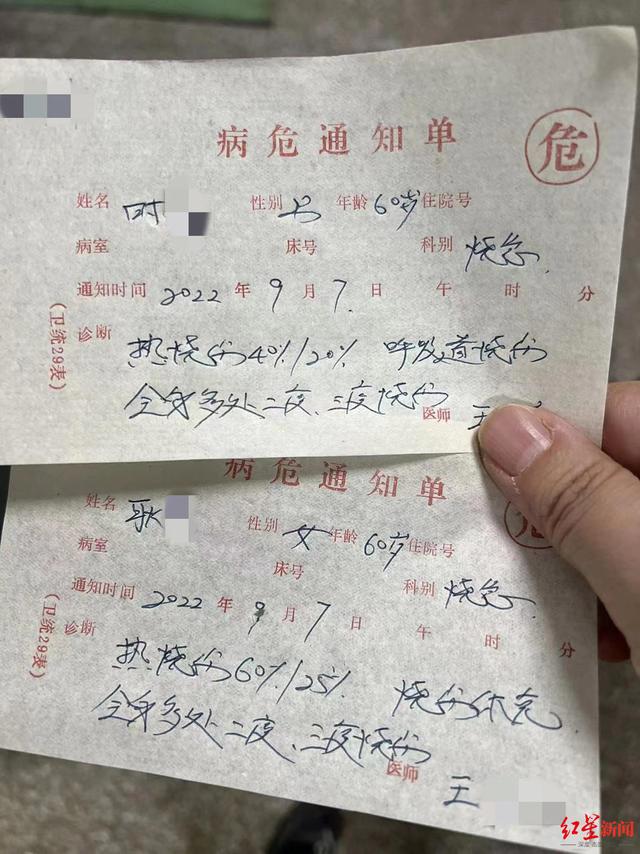 病危通知单
危
姓名 时 性别 女 年龄 60岁 住院号
病室 床号 科别 烧急
通知时间 2022 年 9 月 7 日 午 时 分
诊断 热烧伤40%/20% 呼吸道烧伤
全身多处二度、三度烧伤
医师 王
(卫统29表)
病危通知单
危
姓名 耿 性别 女 年龄 60岁 住院号
病室 床号 科别 烧急
通知时间 2022 年 9 月 7 日 午 时 分
诊断 热烧伤60%/25% 烧伤休克
全身多处二度、三度烧伤
医师 王
(卫统29表)
红星新闻